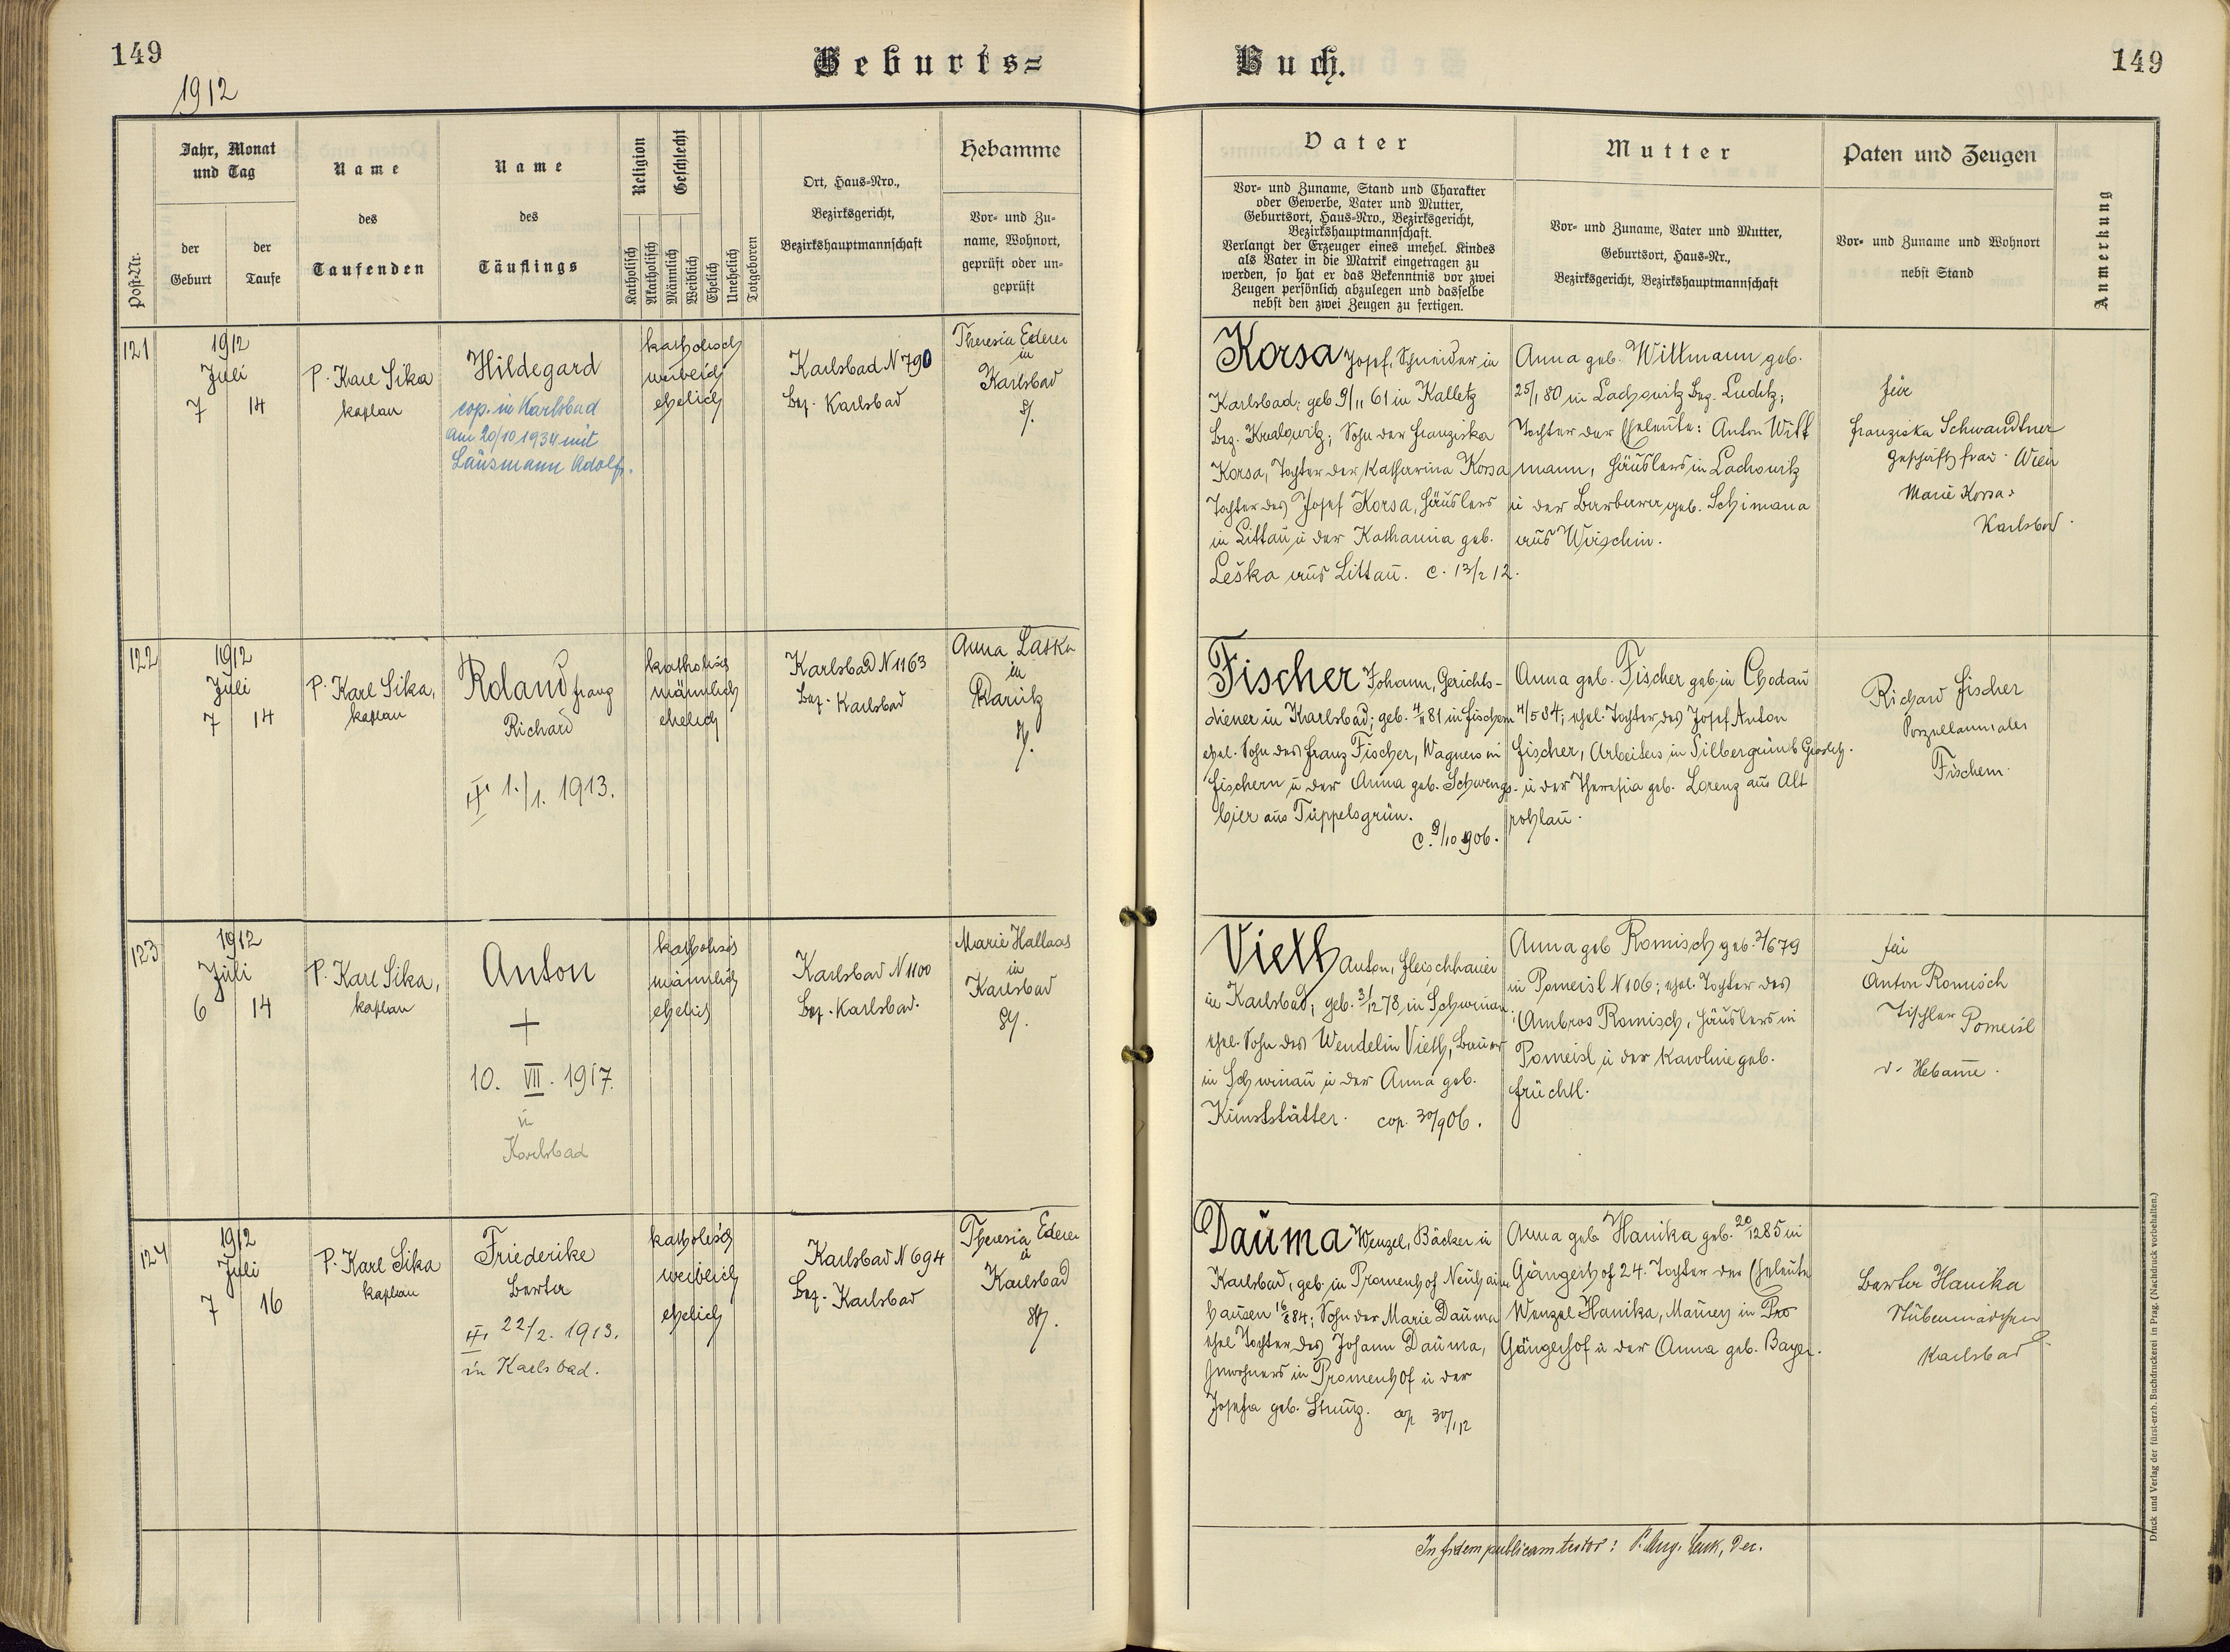 149
Geburts=
Buch.
149
1912
Post-Nr.
Jahr, Monat
und Tag
der
Geburt
der
Taufe
Name
des
Taufenden
Name
des
Täuflings
Religion
Geschlecht
Katholisch
Akatholisch
Männlich
Weiblich
Ehelich
Unehelich
Totgeboren
Ort, Haus-Nro.,
Bezirksgericht,
Bezirkshauptmannschaft
Hebamme
Vor- und Zu-
name, Wohnort,
geprüft oder un-
geprüft
Vater
Vor- und Zuname, Stand und Charakter
oder Gewerbe, Vater und Mutter,
Geburtsort, Haus-Nro., Bezirksgericht,
Bezirkshauptmannschaft.
Verlangt der Erzeuger eines unehel. Kindes
als Vater in die Matrik eingetragen zu
werden, so hat er das Bekenntnis vor zwei
Zeugen persönlich abzulegen und dasselbe
nebst den zwei Zeugen zu fertigen.
Mutter
Vor- und Zuname, Vater und Mutter,
Geburtsort, Haus-Nr.,
Bezirksgericht, Bezirkshauptmannschaft
Paten und Zeugen
Vor- und Zuname und Wohnort
nebst Stand
Anmerkung
121
1912
Juli
7 14
P. Karl Sika
kaplan
Hildegard
cop. in Karlsbad
am 20/10 1934 mit
Lausmann Adolf.
katholisch
weiblich
ehelich
Karlsbad N 790
Bez. Karlsbad
Theresia Ederer
in
Karlsbad
Korsa Josef, Schneider in
Karlsbad; geb. 9/11 61 in Kalletz
Bez. Kralowitz; Sohn der Franziska
Korsa, Tochter der Katharina Korsa
Tochter des Josef Korsa, Häuslers
in Littau u der Katharina geb.
Leška aus Littau. c. 13/2 12.
Anna geb. Wittmann geb.
25/1 80 in Lachowitz Bez. Luditz;
Tochter der Eheleute: Anton Witt
mann, Häuslers in Lachowitz
u der Barbara geb. Schimana
aus Wirschin.
für
Franziska Schwandtner
Geschäftsfrau Wien
Marie Korsa
Karlsbad.
122
1912
Juli
7 14
P. Karl Sika,
kaplan
Roland Franz
Richard
1./1. 1913.
katholisch
männlich
ehelich
Karlsbad N 1163
Bez. Karlsbad
Anna Laska
in
Fischer Johann, Gerichts-
diener in Karlsbad; geb. 4/11 81 in Fischern
ehel. Sohn des Franz Fischer, Wagners in
Fischern u der Anna geb. Schweng-
bier aus Tüppelsgrün.
c. 9/10 906.
Anna geb. Fischer geb. in Chodau
4/5 84; ehel. Tochter des Josef Anton
Fischer, Arbeiters in Silbergrün b
u der Theresia geb. Lorenz aus Alt
rohlau.
Richard Fischer
Porzellanmaler
Fischern.
123
1912
Juli
6 14
P. Karl Sika,
kaplan
Anton
+
10. VII. 1917.
in
Karlsbad
katholisch
männlich
ehelich
Karlsbad N 1100
Bez. Karlsbad.
Marie Hallaas
in
Karlsbad
Vieth Anton, Fleischhauer
in Karlsbad; geb. 3/12 78 in Schwinau;
ehel. Sohn des Wendelin Vieth, Bauer
in Schwinau u der Anna geb.
Kunststätter. cop. 30/9 06.
Anna geb Romisch geb. 2/6 79
in Pomeisl N 106; ehel. Tochter des
Ambros Romisch, Häuslers in
Pomeisl u der Karoline geb.
Früchtl.
für
Anton Romisch
Tischler Pomeisl
d. Hebamme.
124
1912
Juli
7 16
P. Karl Sika
kaplan
Friederike
Berta
22/2. 1913.
in Karlsbad.
katholisch
weiblich
ehelich
Karlsbad N 694
Bez. Karlsbad
Theresia Ederer
in
Karlsbad
Dauma Wenzel, Bäcker in
Karlsbad, geb. in Promenhof
hausen 16/8 84; Sohn der Marie Dauma
ehel Tochter des Johann Dauma,
Inwohners in Promenhof u der
Josefa geb. Strunz. cop 30/1 12
Anna geb Hanika geb. 20/12 85 in
Gängerhof 24. Tochter der Eheleute
Wenzel Hanika, Maurer in Pro
Gängerhof u der Anna geb. Bayer.
Berta Hanika
Stubenmädchen
Karlsbad
In fidem publicam testor:
Druck und Verlag der fürst-erzb. Buchdruckerei in Prag. (Nachdruck vorbehalten.)